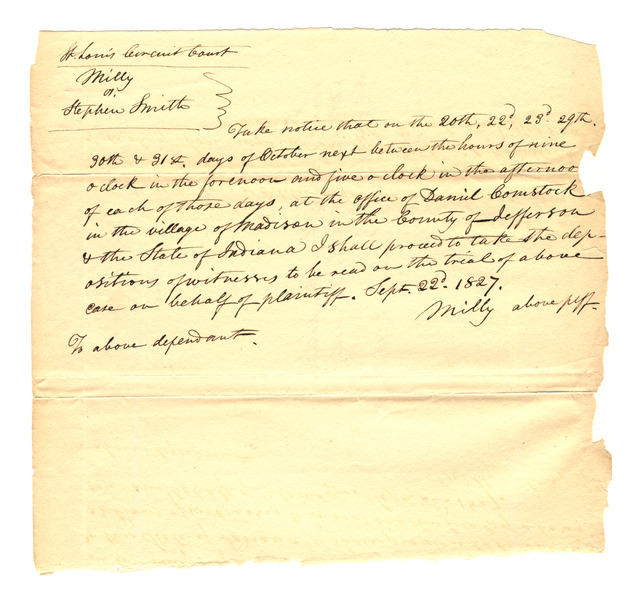 St. Louis Circuit Court
Milly
vs.
Stephen Smith
Take notice that on the 20th, 22d, 23d 29th.
30th & 31st. days of October next between the hours of nine
o clock in the forenoon and five o clock in the afternoo
of each of those days, at the office of Daniel Comstock
in the village of Madison in the County of Jefferson
& the State of Indiana I shall proceed to take the dep-
ositions of witnesses to be read on the trial of above
case on behalf of plaintiff. Sept. 22d. 1827.
Milly above ptff.
To above dependant.